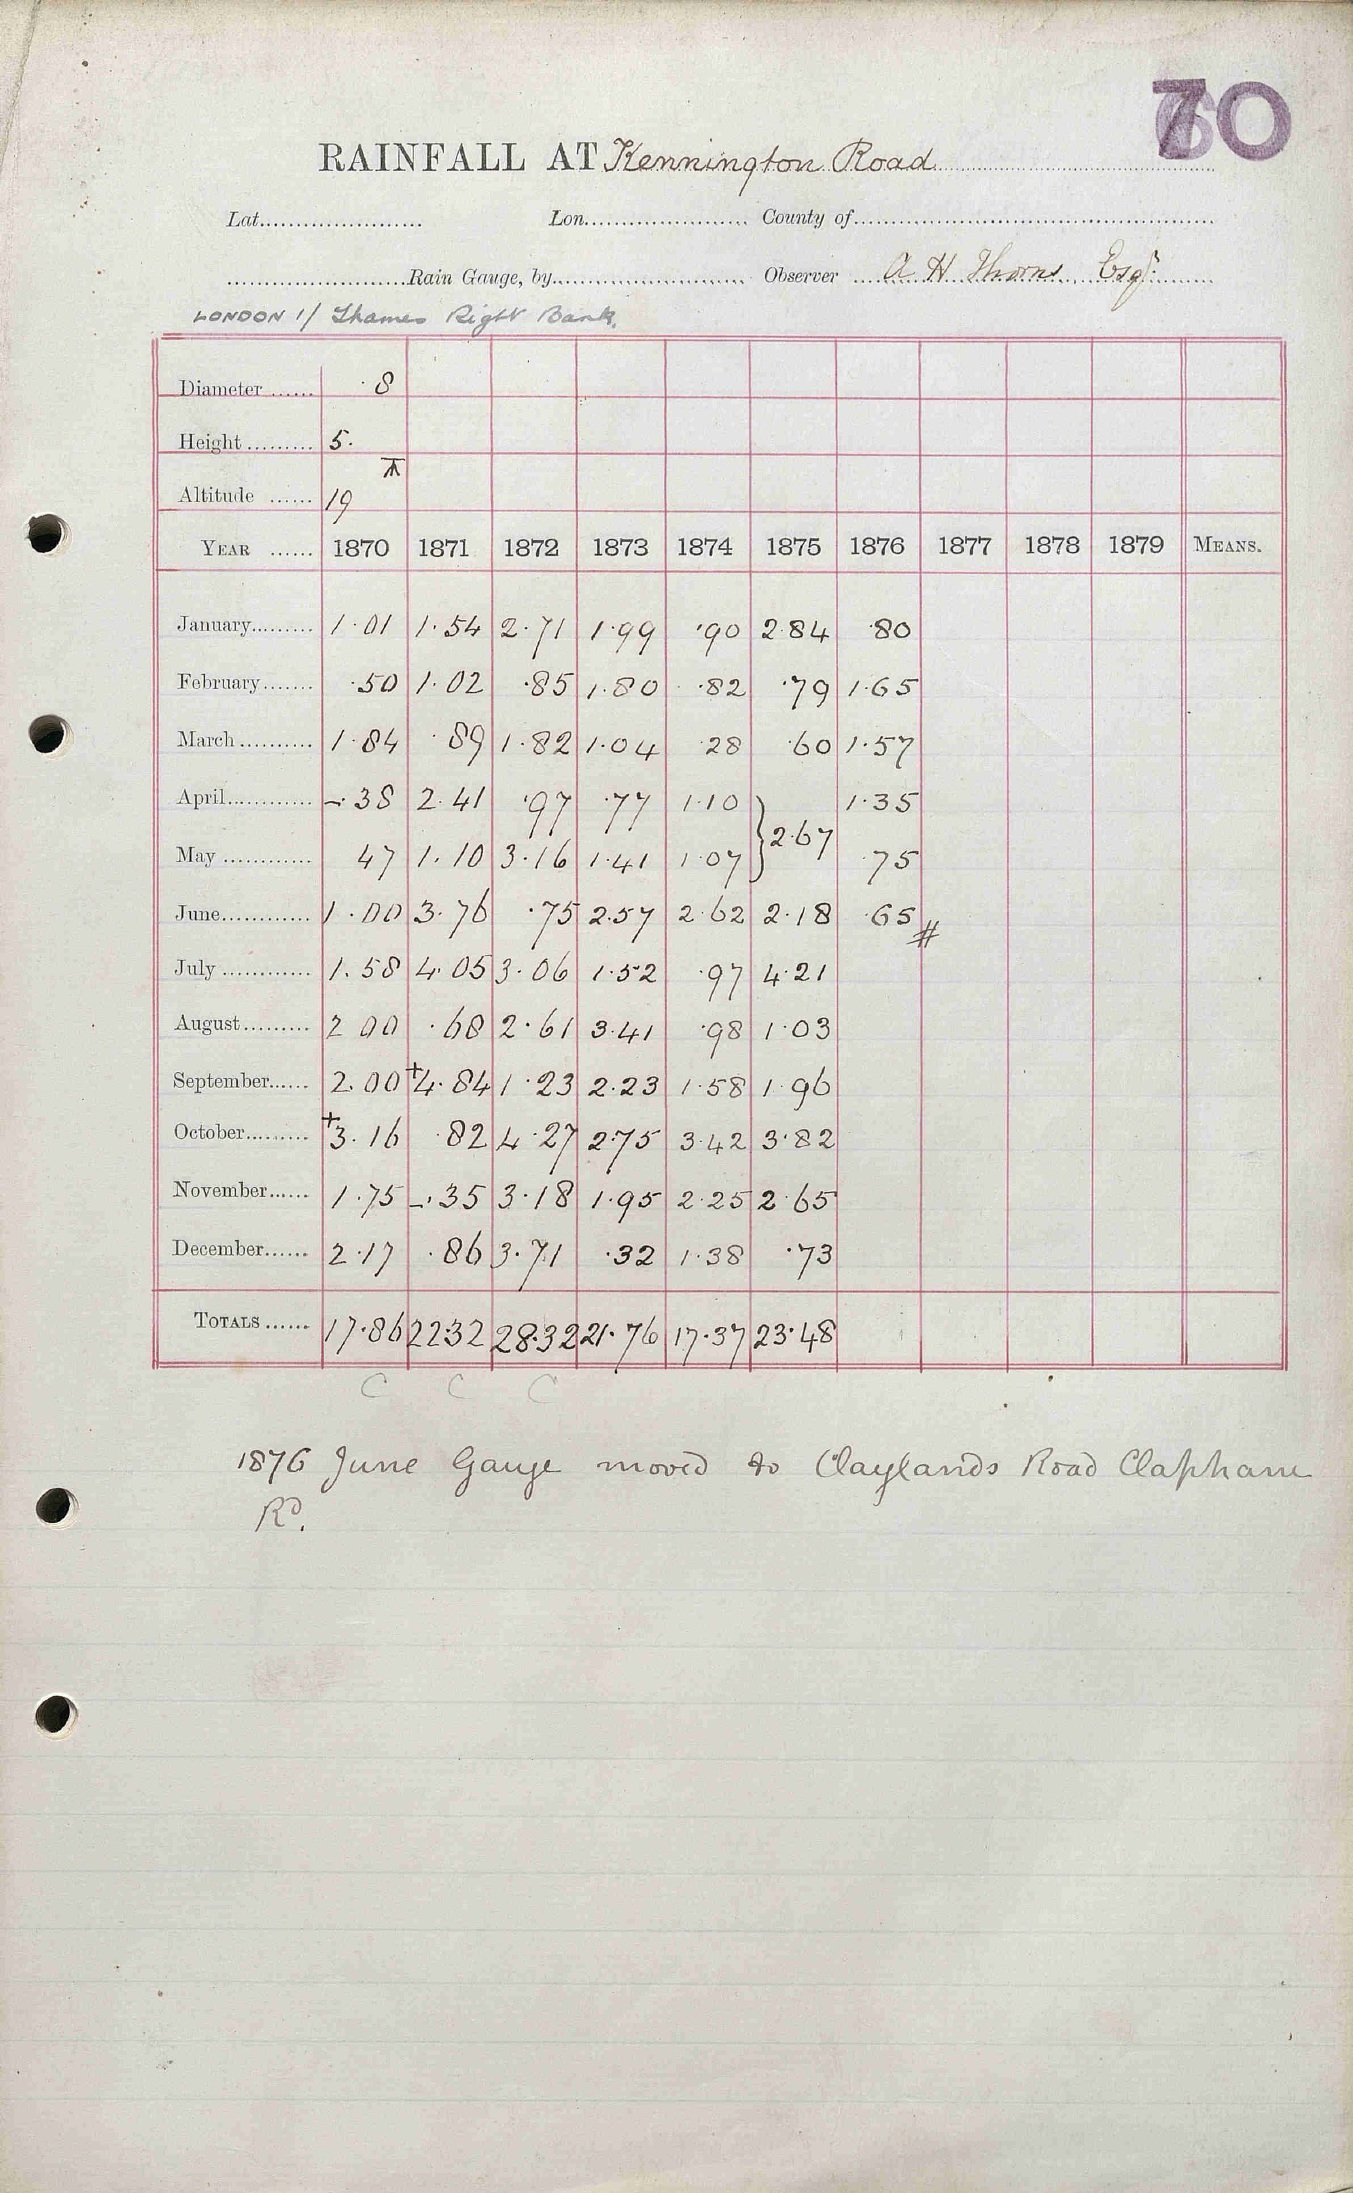 70
RAINFALL AT Kennington Road
Lat. Lon. County of
Rain Gauge, by Observer A H Thorns Esqr.
LONDON 1/ Thames Right Bank.
Diameter ·8
Height 5.
Altitude 19
YEAR 1870 1871 1872 1873 1874 1875 1876 1877 1878 1879 MEANS.
January 1·01 1·54 2·71 1·99 ·90 2·84 ·80
February ·50 1·02 ·85 1·80 ·82 ·79 1·65
March 1·84 ·89 1·82 1·04 ·28 ·60 1·57
April –·38 2·41 ·97 ·77 1·10 } 1·35
2·67
May 47 1·10 3·16 1·41 1·07 ·75
June 1·00 3·76 ·75 2·57 2·62 2·18 ·65 #
July 1·58 4·05 3·06 1·52 ·97 4·21
August 2 00 ·68 2·61 3·41 ·98 1·03
September 2·00 +4·84 1·23 2·23 1·58 1·96
October +3·16 ·82 4·27 2·75 3·42 3·82
November 1·75 –·35 3·18 1·95 2·25 2·65
December 2·17 ·86 3·71 ·32 1·38 ·73
TOTALS 17·86 22·32 28·32 21·76 17·37 23·48
C C C
1876 June Gauge moved to Claylands Road Clapham
Rd.